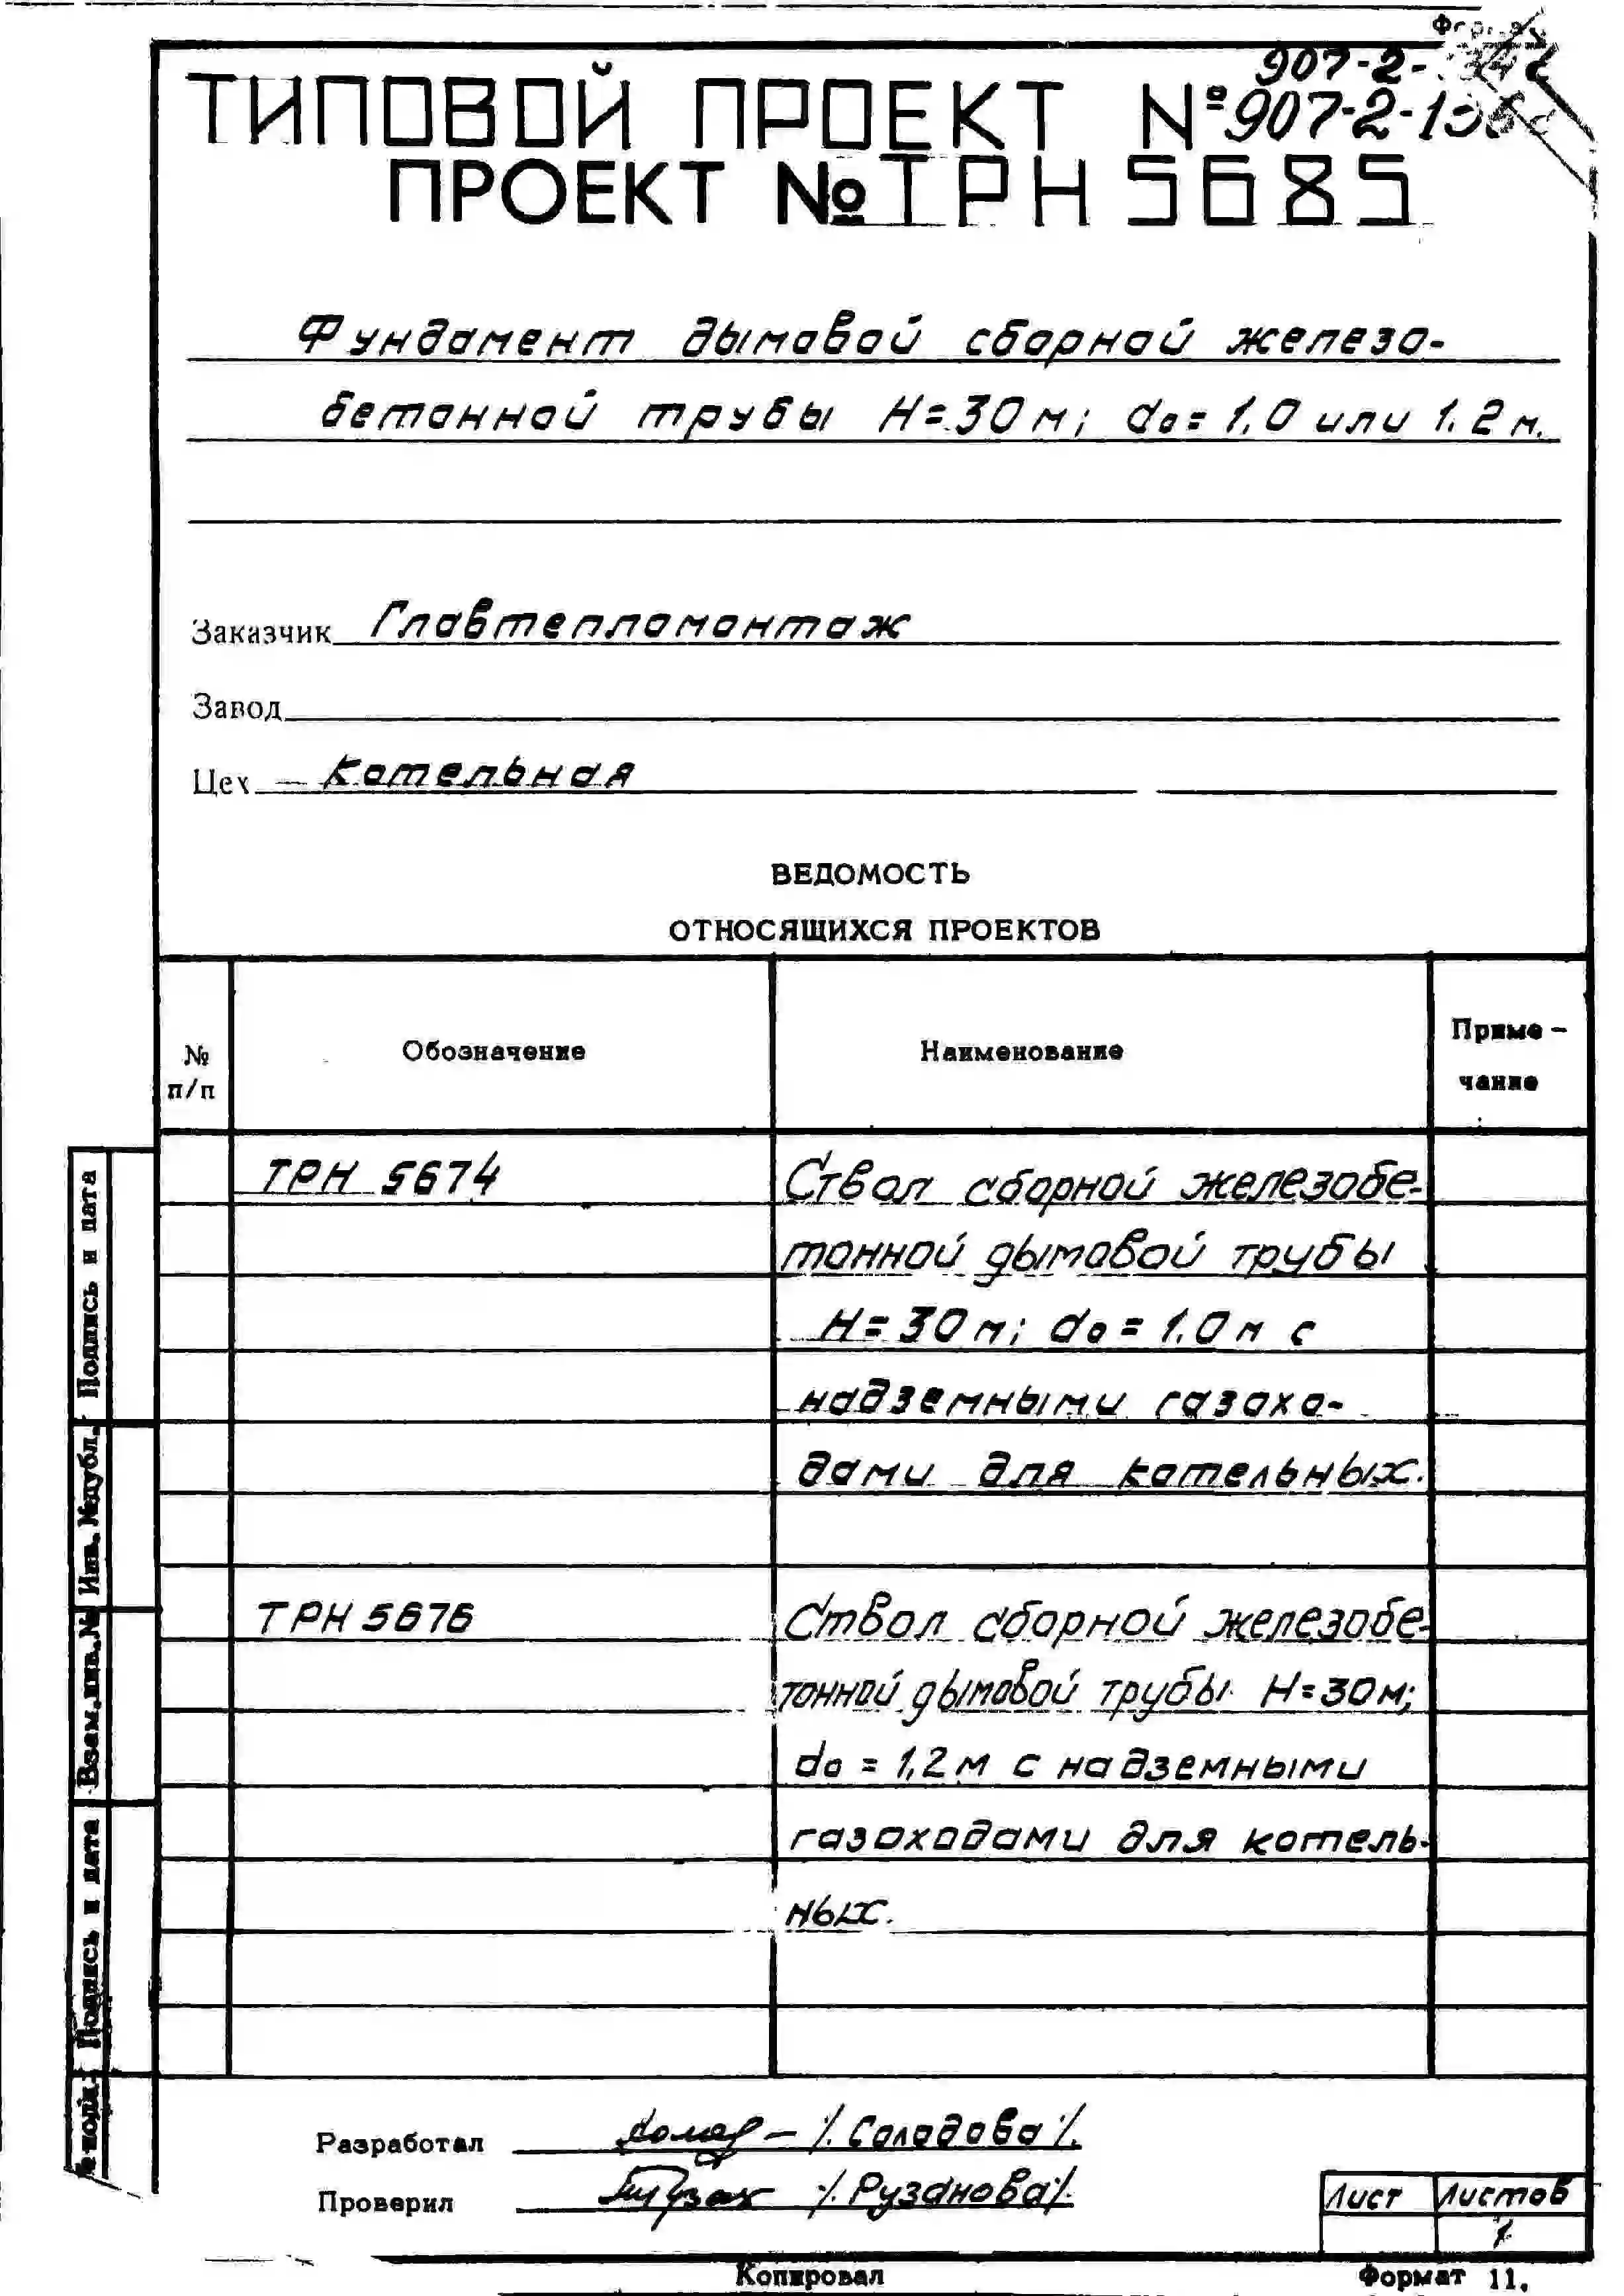 907-2-
ТИПОВОЙ ПРОЕКТ №907-2-
ПРОЕКТ № ТРН 5685
Фундамент дымовой сборной железо-
бетонной трубы Н=30м; do=1,0 или 1,2 м.
Заказчик Главтепломонтаж
Завод
Цех — Котельная
ВЕДОМОСТЬ
ОТНОСЯЩИХСЯ ПРОЕКТОВ
№ п/п Обозначение Наименование Приме-
чание
ТРН 5674 Ствол сборной железобе-
тонной дымовой трубы
Н=30м; do=1.0м с
надземными газохо-
дами для котельных.
ТРН 5676 Ствол сборной железобе-
тонной дымовой трубы Н=30м;
do = 1,2м с надземными
газоходами для котель-
ных.
Подпись и дата
Инв. №дубл.
Взам.инв.№
Подпись и дата
№ подл.
Разработал /Солодова/.
Проверил /Рузанова/.
Лист Листов
1
Копировал Формат 11.